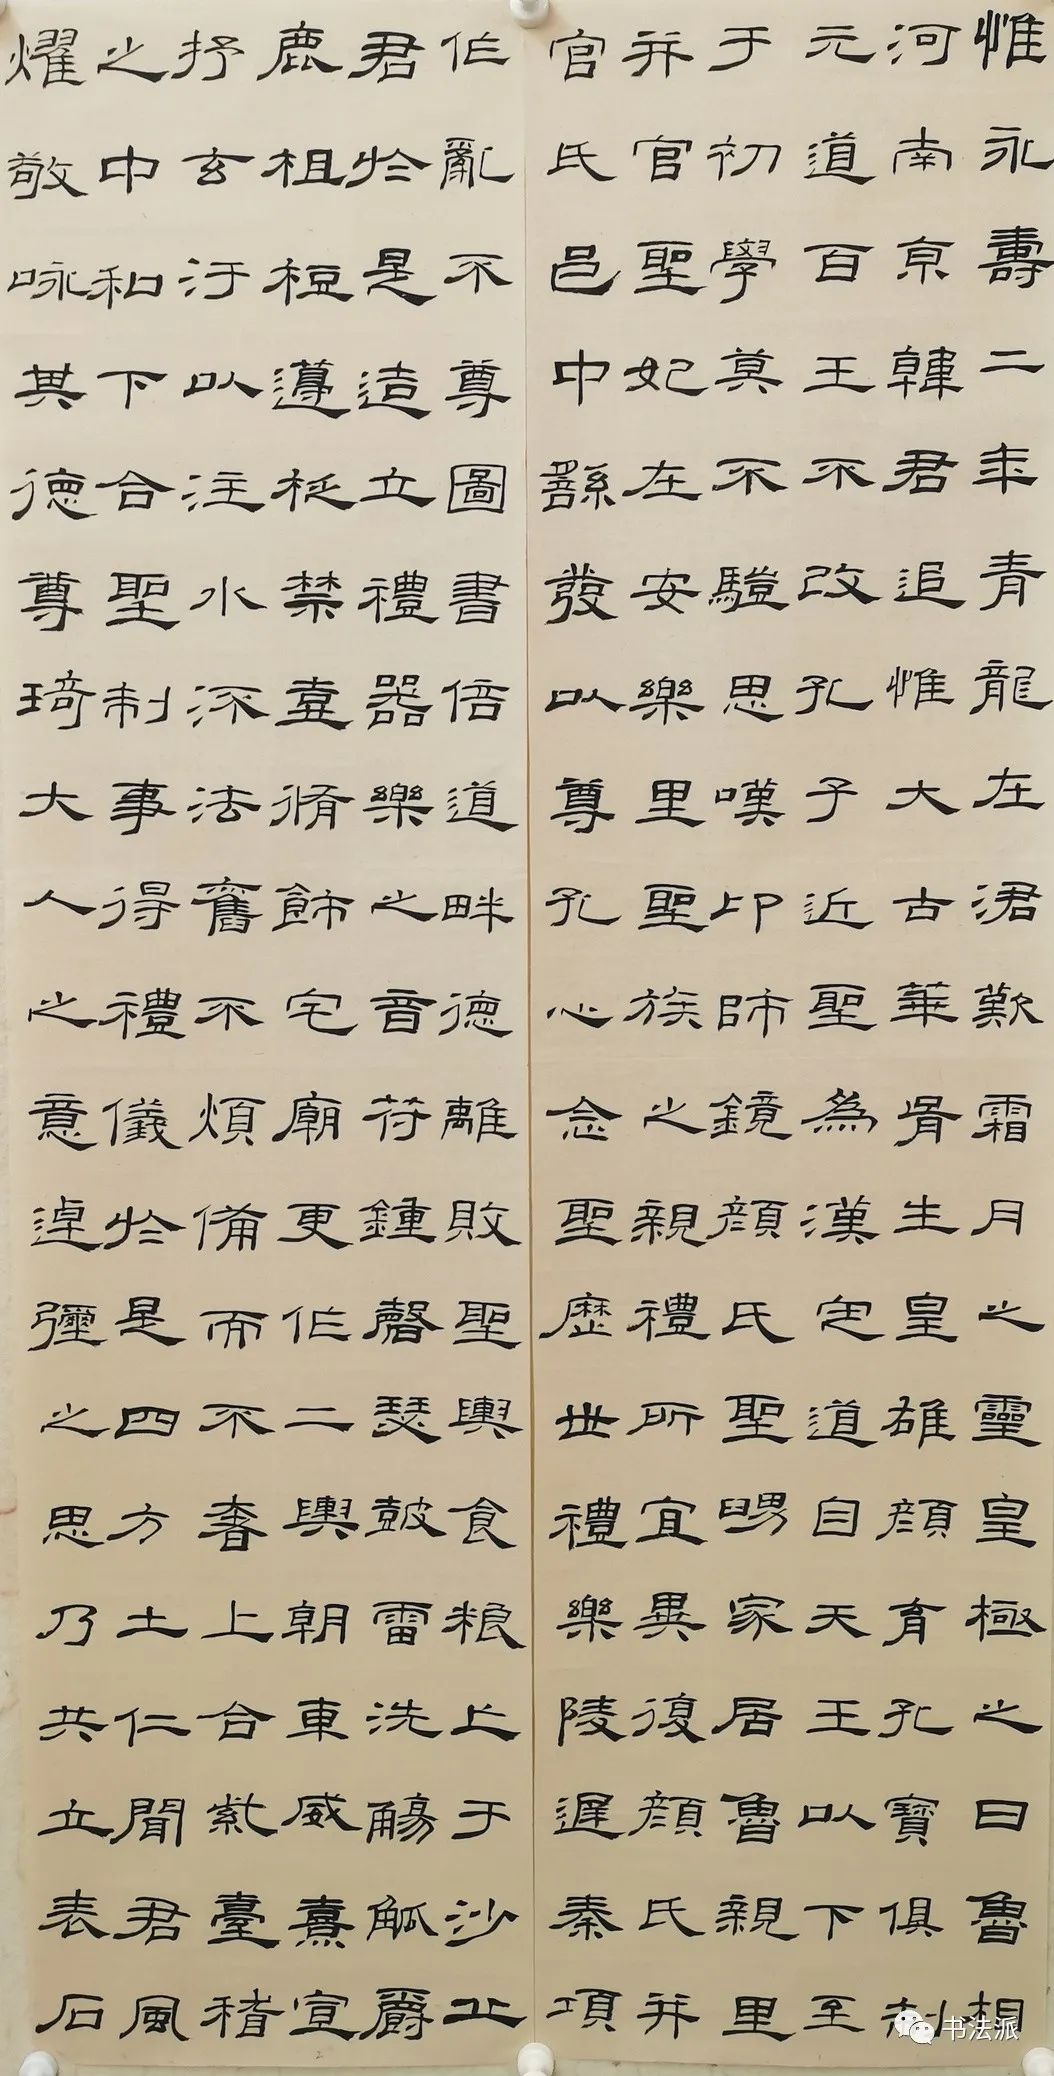 惟永壽二年青龍在涒歎霜月之靈皇極之日魯相
河南京韓君追惟大古華胥生皇雄顏育孔寶俱制
元道百王不改孔子近聖為漢定道自天王以下至
于初學莫不驥思嘆卬師鏡顏氏聖舅家居魯親里
并官聖妃在安樂里聖族之親禮所宜異復顏氏并
官氏邑中繇發以尊孔心念聖歷世禮樂陵遲秦項
作亂不尊圖書倍道畔德離敗聖輿食粮亡于沙丘
君於是造立禮器樂之音符鍾磬瑟鼓雷洗觴觚爵
鹿柤梪籩柉禁壺脩飾宅廟更作二輿朝車威熹宣
抒玄汙以注水流法舊不煩備而不奢上合紫臺稽
之中和下合聖制事得禮儀於是四方土仁聞君風
燿敬咏其德尊琦大人之意逴彌之思乃共立表石
书法派